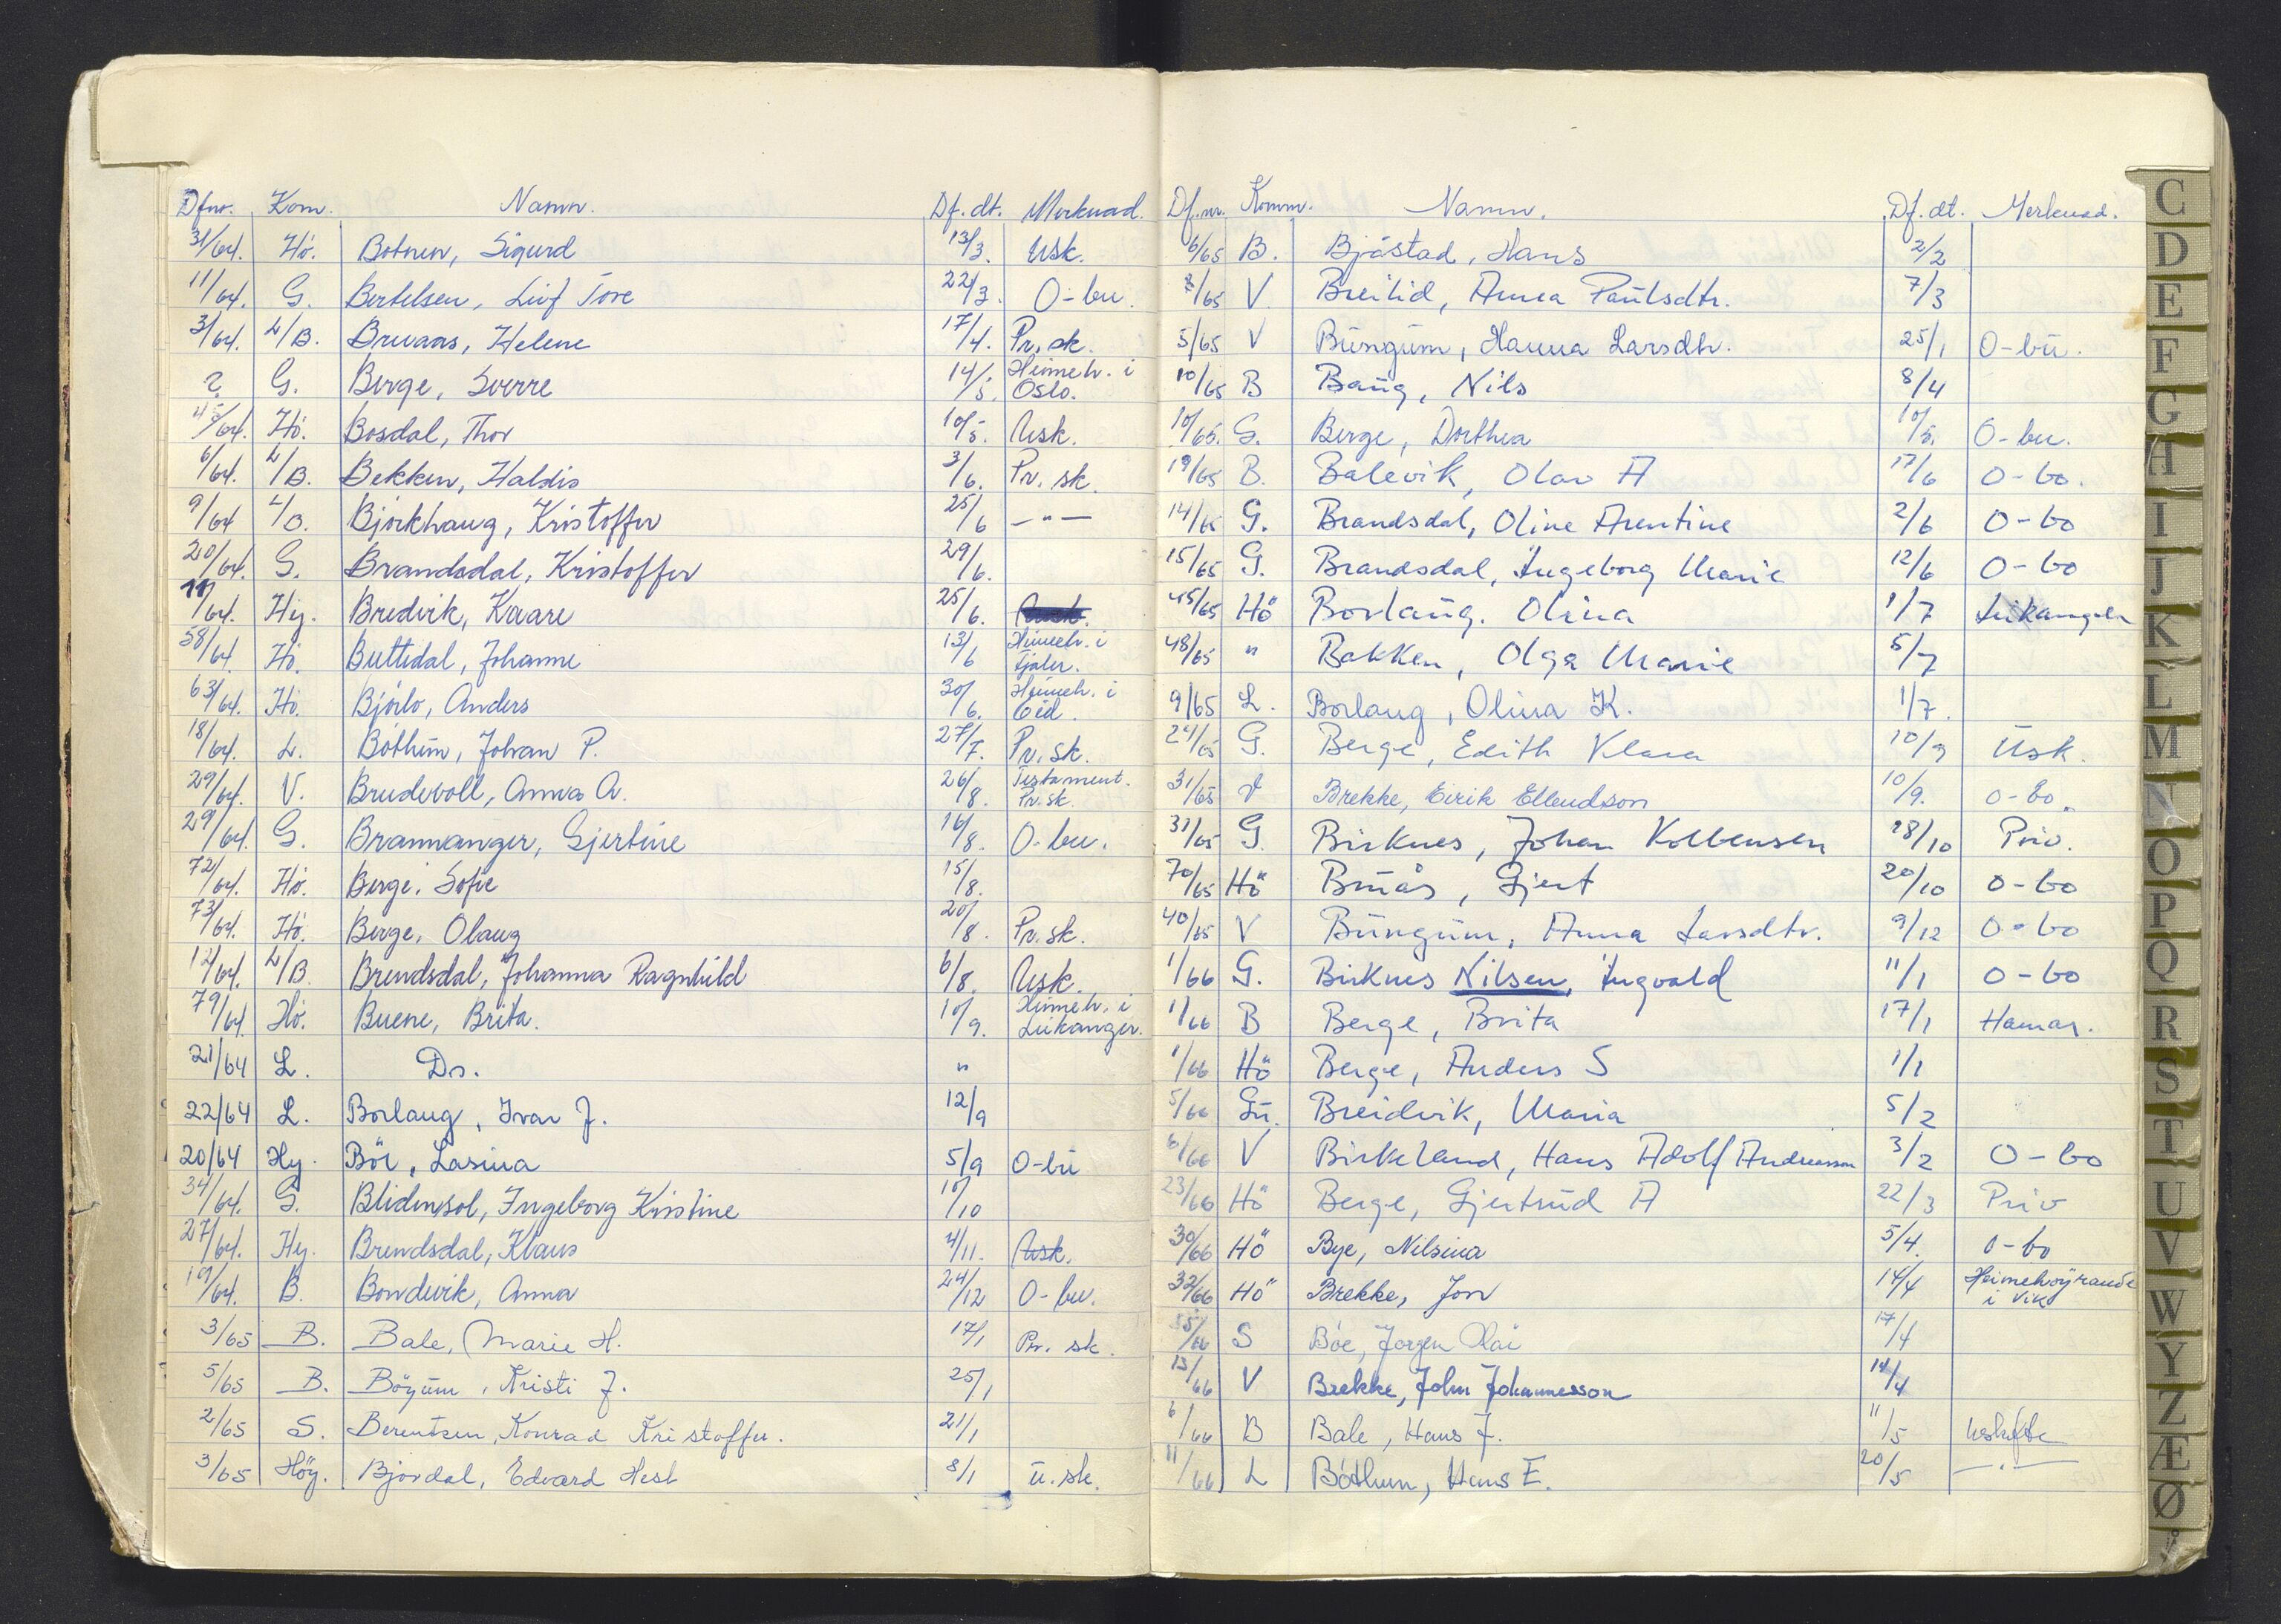 Dfnr. Kom. Namn. Df. dt. Merknad.
31/64. Hö. Botnen, Sigurd 13/3. Usk.
11/64. G. Bertelsen, Leif Tore 22/3. O-bu.
3/64. L/B. Bruaas, Helene 17/4. Pr. sk.
? G. Berge, Sverre 14/5. Heimeh. i Oslo.
45/64. Hö. Bosdal, Thor 10/5. Usk.
6/64. L/B. Bekken, Haldis 3/6. Pr. sk.
9/64 L/B. Björkhaug, Kristoffer 25/6 — " —
20/64. G. Brandsdal, Kristoffer 29/6.
11/64. Hy. Bredvik, Kaare 25/6. Usk.
58/64. Hö. Buttedal, Johanne 13/6 Heimeh. i Fjaler.
63/64. Hö. Bjørlo, Anders 30/6. Heimeh. i Eid.
18/64. L. Böthun, Johan P. 27/7. Pr. sk.
29/64. V. Brudevoll, Anna A. 26/8. Testament. Pr. sk.
29/64. G. Brannanger, Gjertine 16/8. O-bu.
72/64. Hö. Berge, Sofie 15/8.
73/64. Hö. Berge, Olaug 20/8. Pr. sk.
12/64. L/B. Brendsdal, Johanna Ragnhild 6/8. Usk.
79/64. Hö. Buene, Brita. 10/9. Heimeh. i Leikanger.
21/64 L. Do. "
22/64 L. Borlaug, Ivar J. 12/9
20/64 Hy. Bör, Lasina 5/9 O-bu
34/64. G. Blidensol, Ingeborg Kristine 10/10
27/64. Hy. Brendsdal, Klaus 4/11. Usk.
19/64. B. Bondevik, Anna 24/12 O-bu.
3/65 B. Bale, Marie H. 17/1 Pr. sk.
5/65 B. Böyum, Kristi J. 25/1
2/65 S. Berentsen, Konrad Kristoffer. 21/1
3/65 Höy. Bjordal, Edvard Hest 8/1 u. sk.
Df. nr. Komm. Namn. Df. dt. Merknad.
6/65 B. Bjåstad, Hans 2/2
8/65 V Breilid, Anna Paulsdtr. 7/3
5/65 V Bungum, Hanna Larsdtr. 25/1 O-bu.
10/65 B Baug, Nils 8/4
10/65. G. Berge, Dorthea 10/5. O-bu.
19/65 B. Balevik, Olav A 17/6 O-bo.
14/65 G. Brandsdal, Oline Arentine 2/6 O-bo
15/65 G. Brandsdal, Ingeborg Marie 12/6 O-bo
45/65 Hö Borlaug. Olina 1/7 Leikanger
48/65 " Bakken, Olga Marie 5/7
9/65 L. Borlaug, Olina K. 1/7.
24/65 G. Berge, Edith Klara 10/9 Usk.
31/65 V Brekke, Eirik Ellendson 10/9. O-bo.
31/65 G. Birknes, Johan Kolbensen 28/10 Priv.
70/65 Hö Bruås, Gjert 20/10 O-bo
40/65 V Bungum, Anna Larsdtr. 9/12 O-bo
1/66 G. Birknes Nilsen, Ingvald 11/1 O-bo
1/66 B Berge, Brita 17/1 Hamar.
1/66 Hö Berge, Anders S 1/1
5/66 Gu. Breidvik, Maria 5/2
6/66 V Birkeland, Hans Adolf Andreassen 3/2 O-bo
23/66 Hö Berge, Gjertrud A 22/3 Priv
30/66 Hö Bye, Nilsina 5/4. O-bo
32/66 Hö Brekke, Jon 14/4 Heimehøyrande i Vik
15/66 S Böe, Jørgen Olai 17/4
13/66 V Brekke, John Johannesson 14/4
6/66 B Bale, Hans J. 11/5 Uskifte
11/66 L Böthun, Hans E. 20/5 — " —
C
D
E
F
G
H
I
J
K
L
M
N
O
P
Q
R
S
T
U
V
W
Y
Z
Æ
Ø
Å